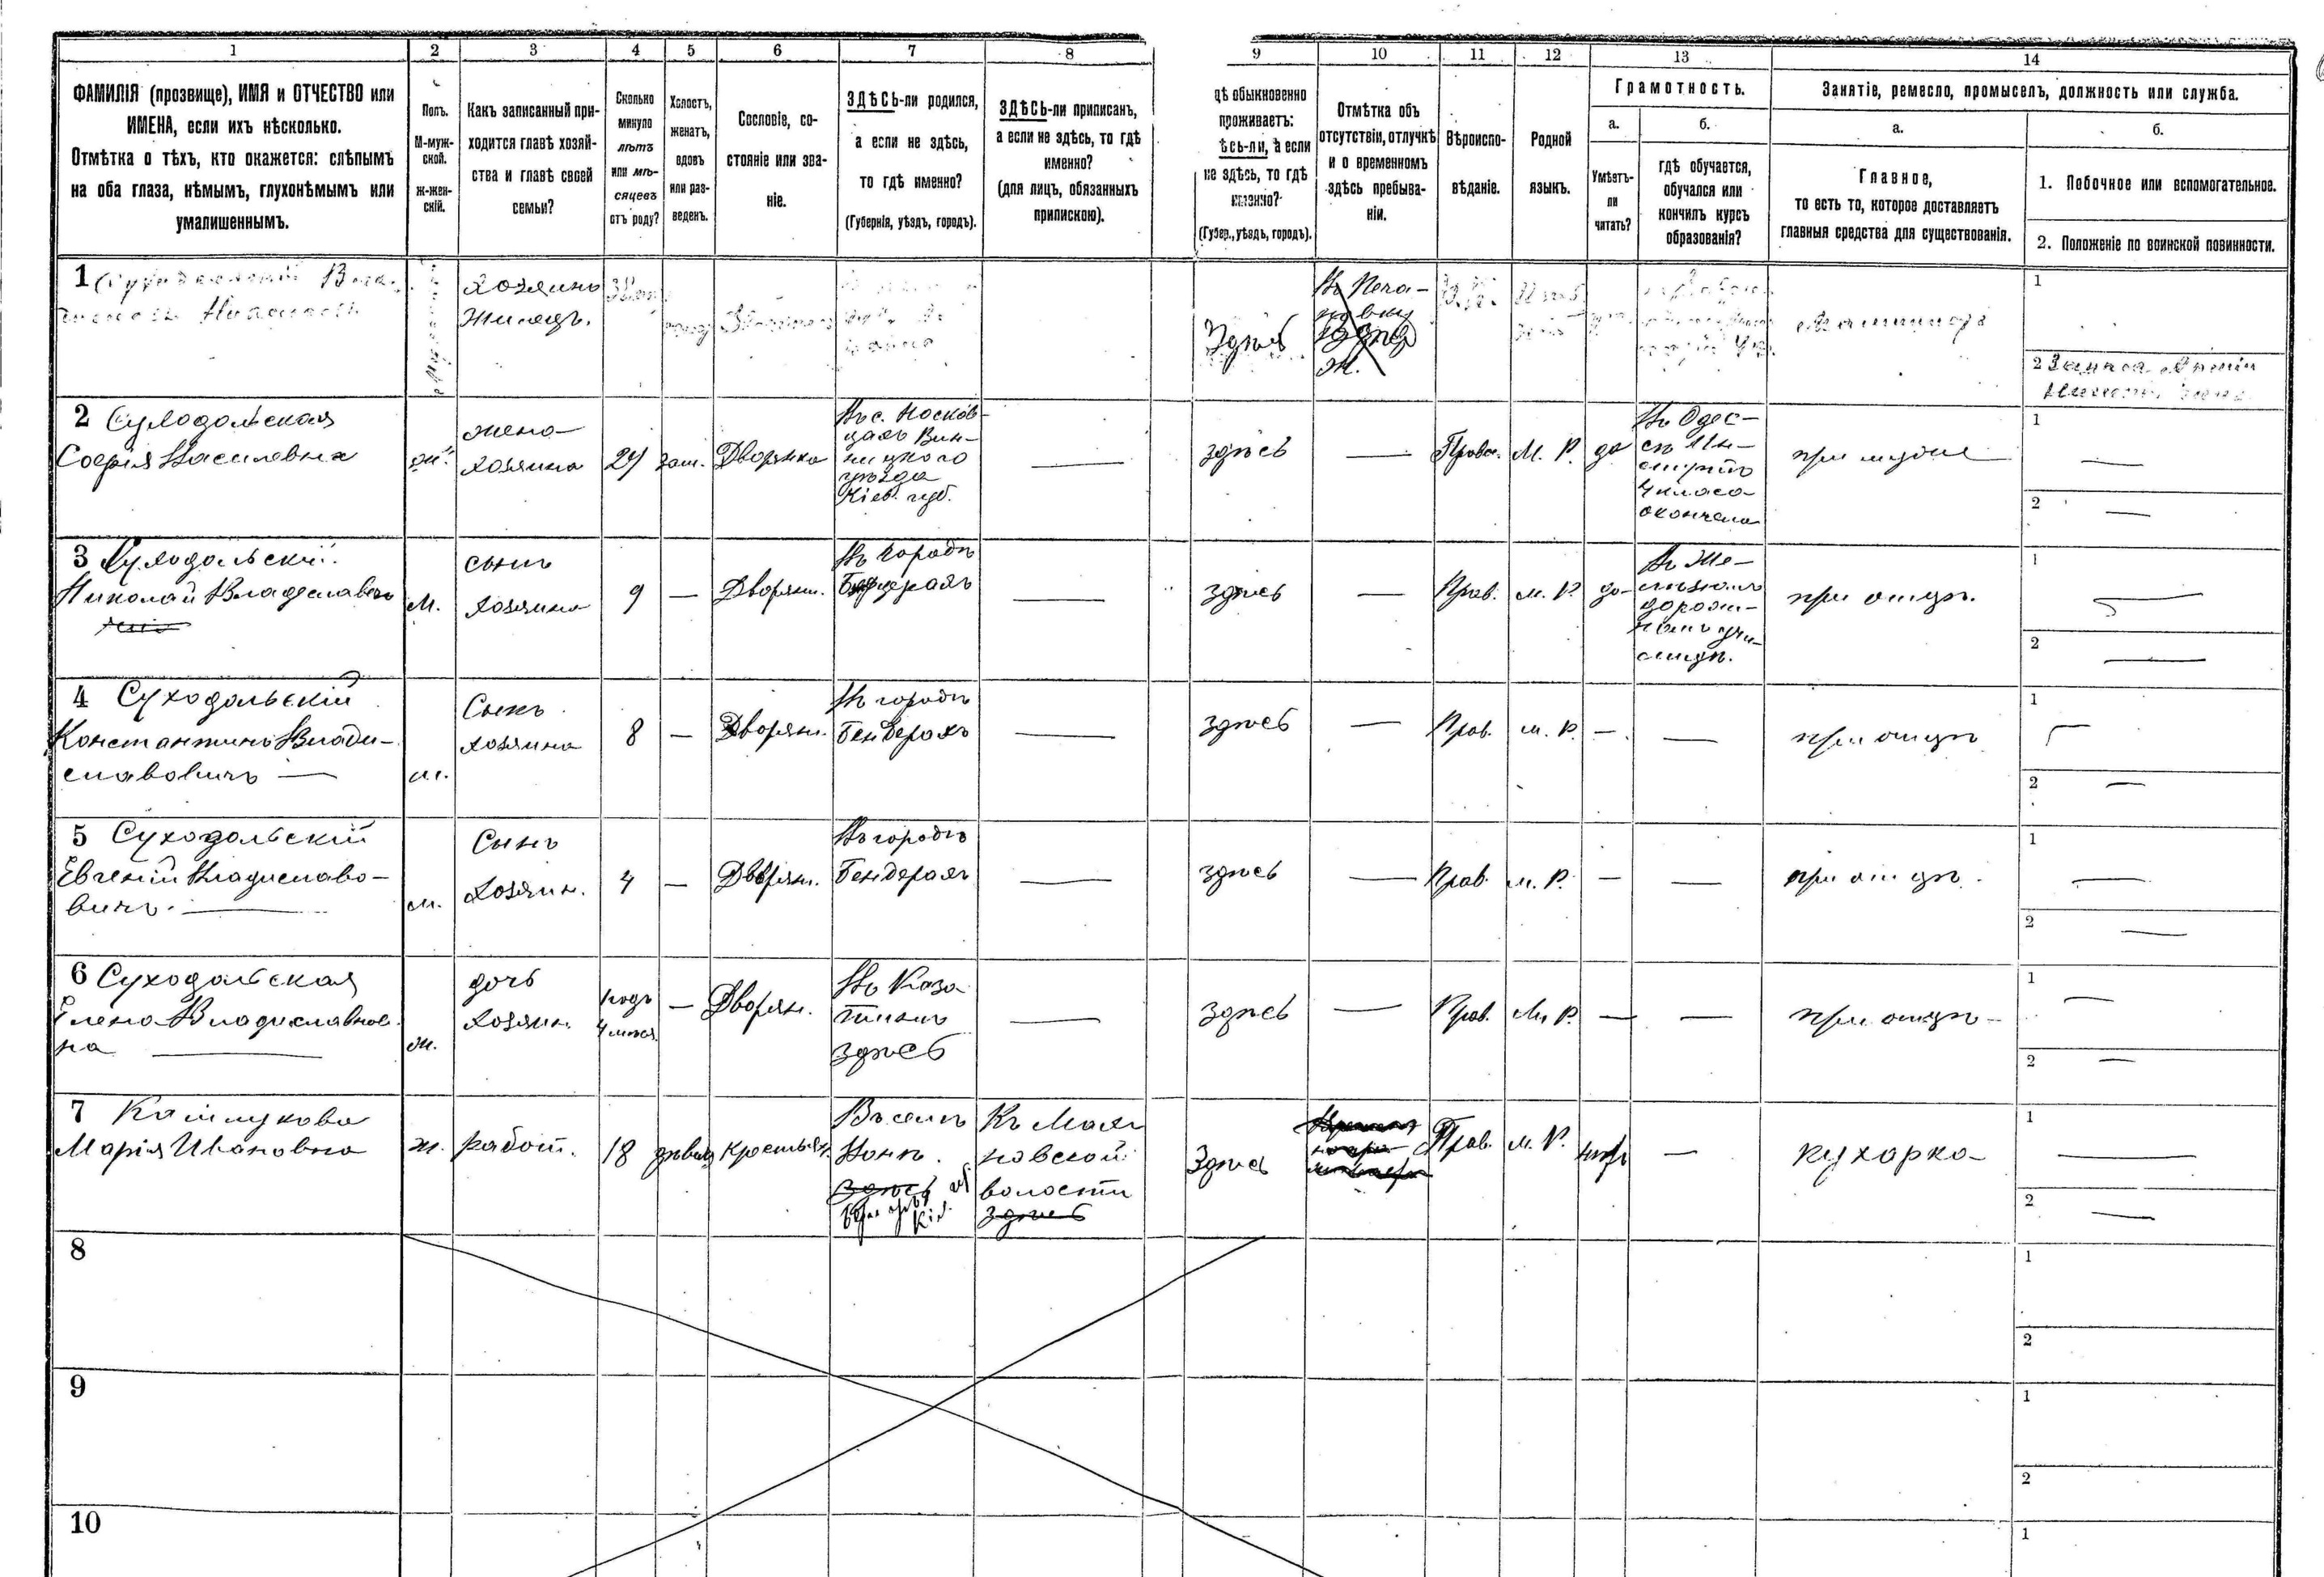 1
2
3
4
5
6
7
8
9
10
11
12
13
14
ФАМИЛІЯ (прозвище), ИМЯ и ОТЧЕСТВО или
ИМЕНА, если ихъ нѣсколько.
Отмѣтка о тѣхъ, кто окажется: слѣпымъ
на оба глаза, нѣмымъ, глухонѣмымъ или
умалишеннымъ.
Полъ.
М-муж-
ской.
ж-жен-
скій.
Какъ записанный при-
ходится главѣ хозяй-
ства и главѣ своей
семьи?
Сколько
минуло
лѣтъ
или мѣ-
сяцевъ
отъ роду?
Холостъ,
женатъ,
вдовъ
или раз-
веденъ.
Сословіе, со-
стояніе или зва-
ніе.
ЗДѢСЬ-ли родился,
а если не здѣсь,
то гдѣ именно?
(Губернія, уѣздъ, городъ).
ЗДѢСЬ-ли приписанъ,
а если не здѣсь, то гдѣ
именно?
(для лицъ, обязанныхъ
припискою).
дѣ обыкновенно
проживаетъ:
ѣсь-ли, а если
не здѣсь, то гдѣ
именно?
(Губер., уѣздъ, городъ).
Отмѣтка объ
отсутствіи, отлучкѣ
и о временномъ
здѣсь пребыва-
ніи.
Вѣроиспо-
вѣданіе.
Родной
языкъ.
Грамотность.
а.
Умѣетъ-
ли
читать?
б.
гдѣ обучается,
обучался или
кончилъ курсъ
образованія?
Занятіе, ремесло, промыселъ, должность или служба.
а.
Главное,
то есть то, которое доставляетъ
главныя средства для существованія.
б.
1. Побочное или вспомогательное.
2. Положеніе по воинской повинности.
1
Хозяинъ
Жилецъ.
Здѣсь
1
2
2 Суходольская
Софія Василевна
ж.
жена
хозяина
24
зам.
Дворянка
Въ с. Носков-
цахъ Вин-
ницкого
уѣзда
Кіев. губ.
здѣсь
Прав.
М. Р.
да
Въ Одес-
4 класа
окончила
при мужѣ
1
2
3 Суходольскій
Николай Владиславов
М.
сынъ
хозяина
9
Дворян.
Въ городѣ
Бендерахъ
здѣсь
Прав.
м. Р.
да
Въ Же-
лѣзном
дорож-
ном учи-
лищѣ.
при отцѣ.
1
2
4 Суходольскій
Константинъ Влади-
славовичъ
м.
Сынъ
хозяина
8
Дворян.
Въ городѣ
Бендерахъ
здѣсь
Прав.
м. Р.
при отцѣ
1
2
5 Суходольскій
Евгеній Владиславо-
вичъ.
м.
Сынъ
Хозяин.
4
Дворян.
Въ городѣ
Бендерахъ
здѣсь
Прав.
м. Р.
при отцѣ.
1
2
6 Суходольская
Елена Владиславнов-
на
ж.
дочь
хозяин.
годъ
4 мѣся.
Дворян.
Въ Каза-
тинѣ
здѣсь
здѣсь
Прав.
М. Р.
при отцѣ
1
2
7
Марія Ивановна
ж.
работ.
18
дѣвица
крестьян.
Въ селѣ
Къ Мах-
новской
волости
здѣсь
Здѣсь
Прав.
м. Р.
нѣтъ
кухарка
1
2
8
1
2
9
1
2
10
1